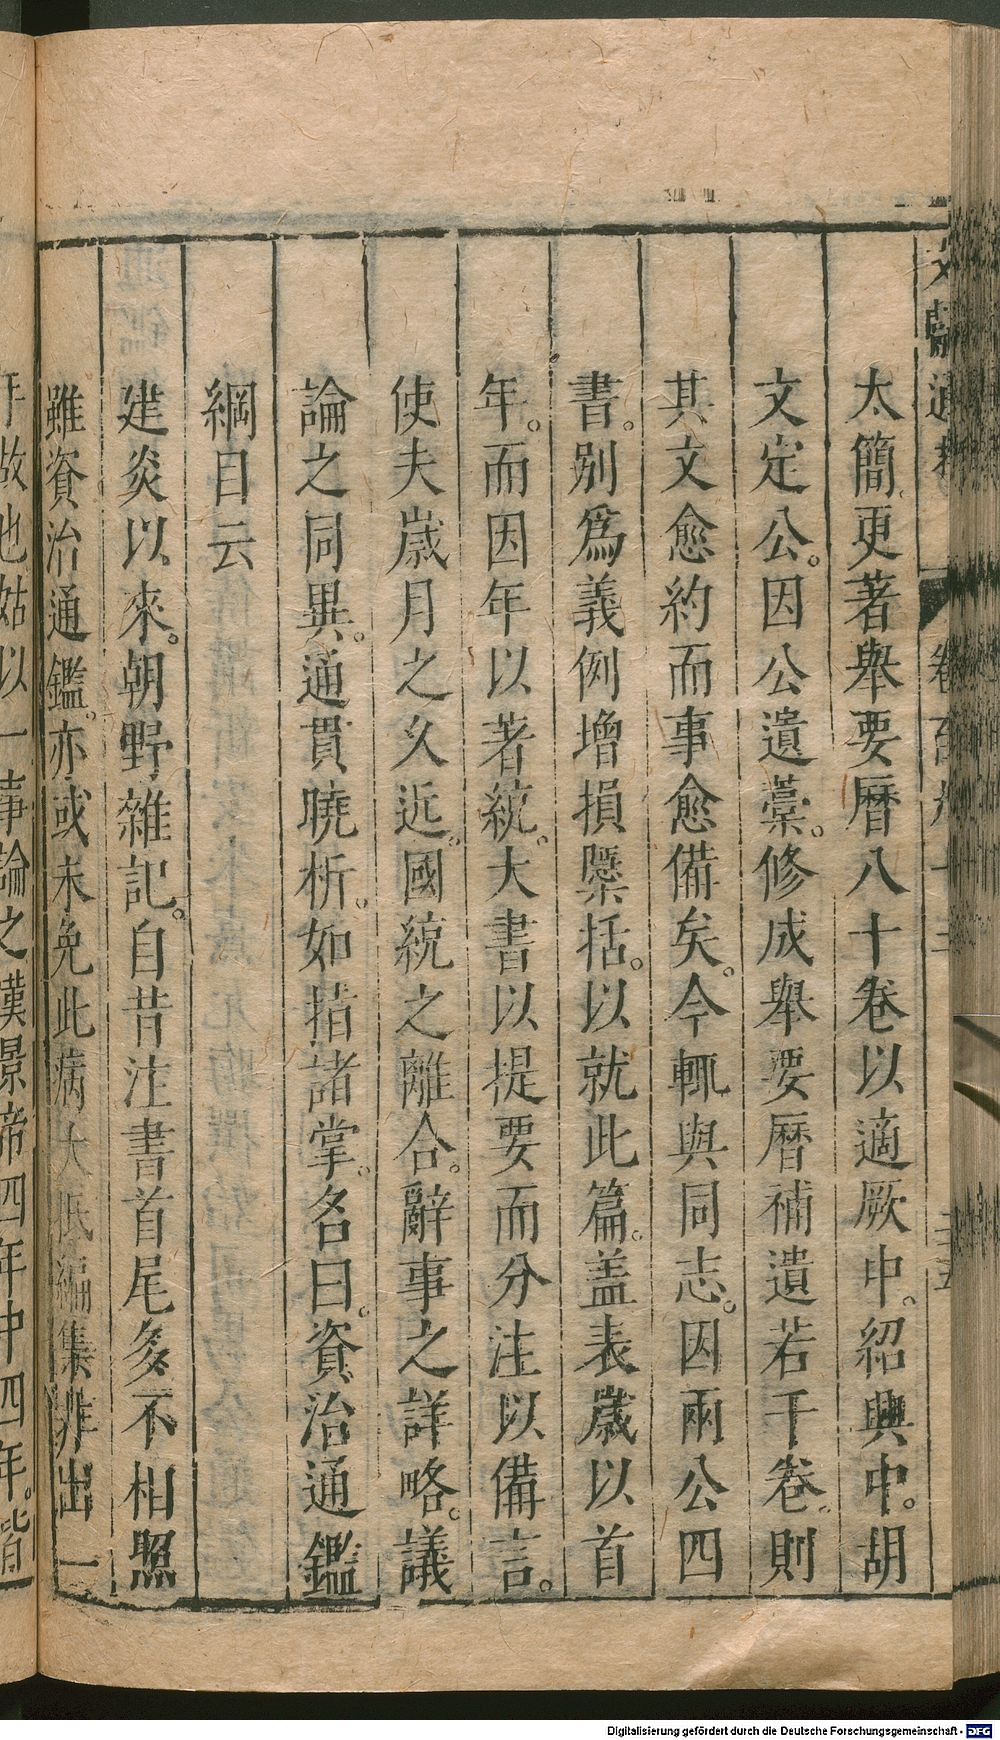 文獻通考 卷百九十三
太簡更著舉要曆八十卷以適厥中。紹興中。胡
文定公。因公遺藳。修成舉要曆補遺若干卷。則
其文愈約而事愈備矣。今輒與同志。因兩公四
書。別爲義例增損檃括。以就此篇。盖表歲以首
年。而因年以著統。大書以提要而分注以備言。
使夫歲月之久近。國統之離合。辭事之詳略。議
論之同異。通貫曉析。如指諸掌。名曰。資治通鑑
綱目云
建炎以來。朝野雜記。自昔注書首尾多不相照
雖資治通鑑。亦或未免此病大抵編集非出一
手故也姑以一事論之漢景帝四年中四年。皆
Digitalisierung gefördert durch die Deutsche Forschungsgemeinschaft - DFG